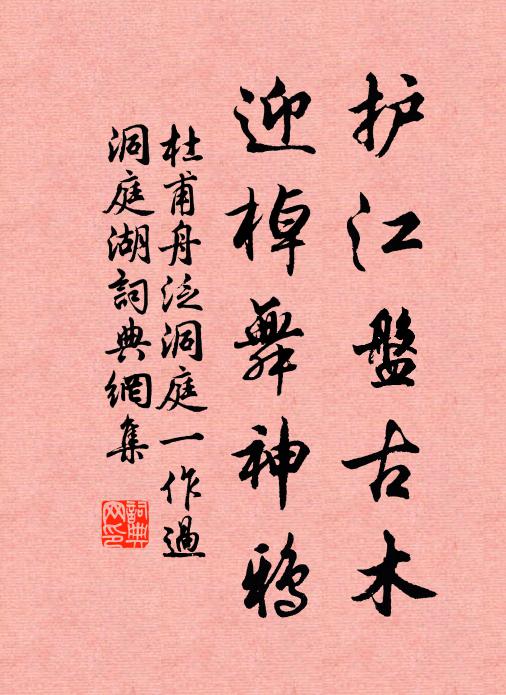 护江盤古木
迎棹舞神鴉
杜甫舟泛洞庭一作過
洞庭湖詞典網集
詞典网印